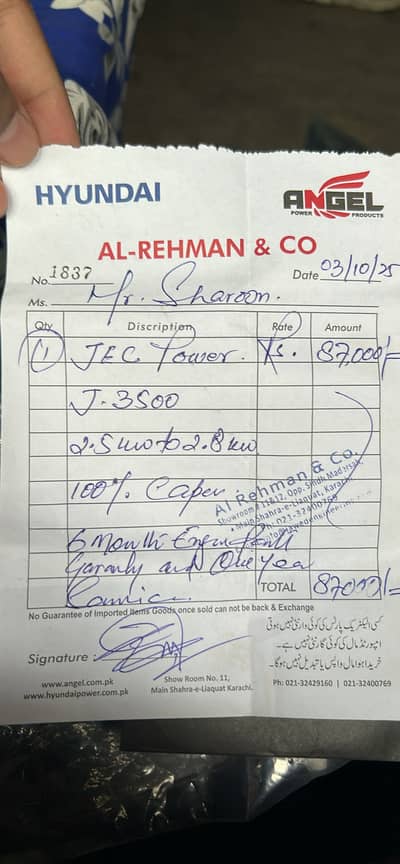 HYUNDAI
ANGEL
POWER PRODUCTS
AL-REHMAN & CO
No. 1837
Date 03/10/25
Ms. Mr. Sharoon.
Qty Discription Rate Amount
1 JEC Power. Rs. 87,000/=
J-3500
2.5kw to 2.8kw
100% Coper
Al Rehman & Co.
Showroom # 11&12, Opp. Sindh Madarsah,
Main Shahra-e-Liaquat, Karachi.
Ph: 021-32400769
6 Month Engine
Garanty and One Year
TOTAL 87000/=
No Guarantee of Imported Items Goods once sold can not be back & Exchange
کسی الیکٹریک پارٹس کی کوئی وارنٹی نہیں ہوتی
امپورٹڈ مال کی کوئی گارنٹی نہیں ہے۔
خریدا ہوا مال واپس یا تبدیل نہیں ہوگا۔
Signature
www.angel.com.pk
www.hyundaipower.com.pk
Show Room No. 11,
Main Shahra-e-Liaquat Karachi.
Ph: 021-32429160 | 021-32400769